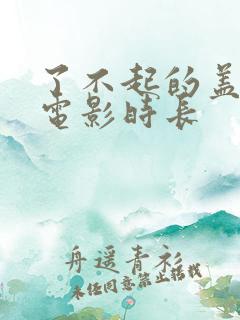 了不起的盖
電影時長
舟遥青衫
未经同意禁止搭载